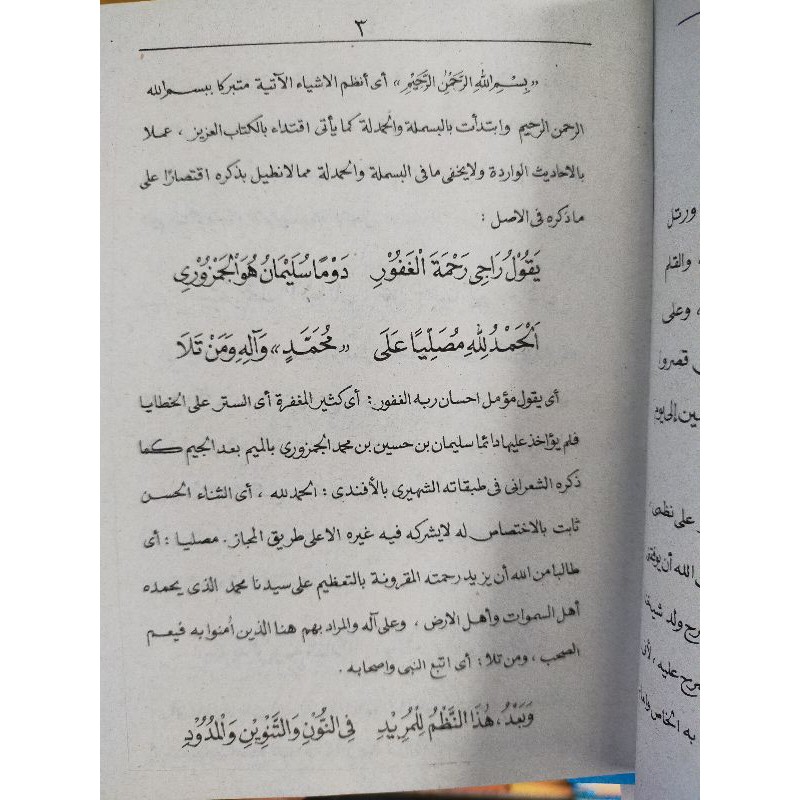 ٣
«بِسْمِ اللهِ الرَّحْمٰنِ الرَّحِيْمِ» أى أنظم الاشياء الآتية متبركا ببسم الله
الرحمن الرحيم وابتدأت بالبسملة والحمدلة كما يأتى اقتداء بالكتاب العزيز، عملا
بالاحاديث الواردة ولايخفى مافى البسملة والحمدلة مما لانطيل بذكره اقتصارًا على
ماذكره فى الاصل :
يَقُوْلُ رَاجِى رَحْمَةَ الْغَفُوْرِ دَوْمًا سُلَيْمَانُ هُوَ الْجَمْزُوْرِى
اَلْحَمْدُ لِلّٰهِ مُصَلِّيًا عَلَى «مُحَمَّدٍ» وَآلِهِ وَمَنْ تَلَا
أى يقول مؤمل احسان ربه الغفور: أى كثير المغفرة أى الستر على الخطايا
فلم يؤاخذ عليها دائما سليمان بن حسين بن محمد الجمزورى بالميم بعد الجيم كما
ذكره الشعرانى فى طبقاته الشهيرى بالأفندى : الحمدلله ، أى الثناء الحسن
ثابت بالاختصاص له لايشركه فيه غيره الاعلى طريق المجاز. مصليا : أى
طالبا من الله أن يزيد رحمته المقرونة بالتعظيم على سيدنا محمد الذى يحمده
أهل السموات وأهل الارض ، وعلى آله والمراد بهم هنا الذين أمنوا به فيعم
الصحب ، ومن تلا : أى اتبع النبى واصحابه .
وَبَعْدُ، هٰذَا النَّظْمُ لِلْمُرِيْدِ فِى النُّوْنِ وَالتَّنْوِيْنِ وَالْمُدُوْدِ
ورتل
، والقلم
، وعلى
قصروا
ين إلى يوم
على نظمى
الله أن يوفقنى
ح ولد شيخنا
رح عليه ، لأن
به الخاص